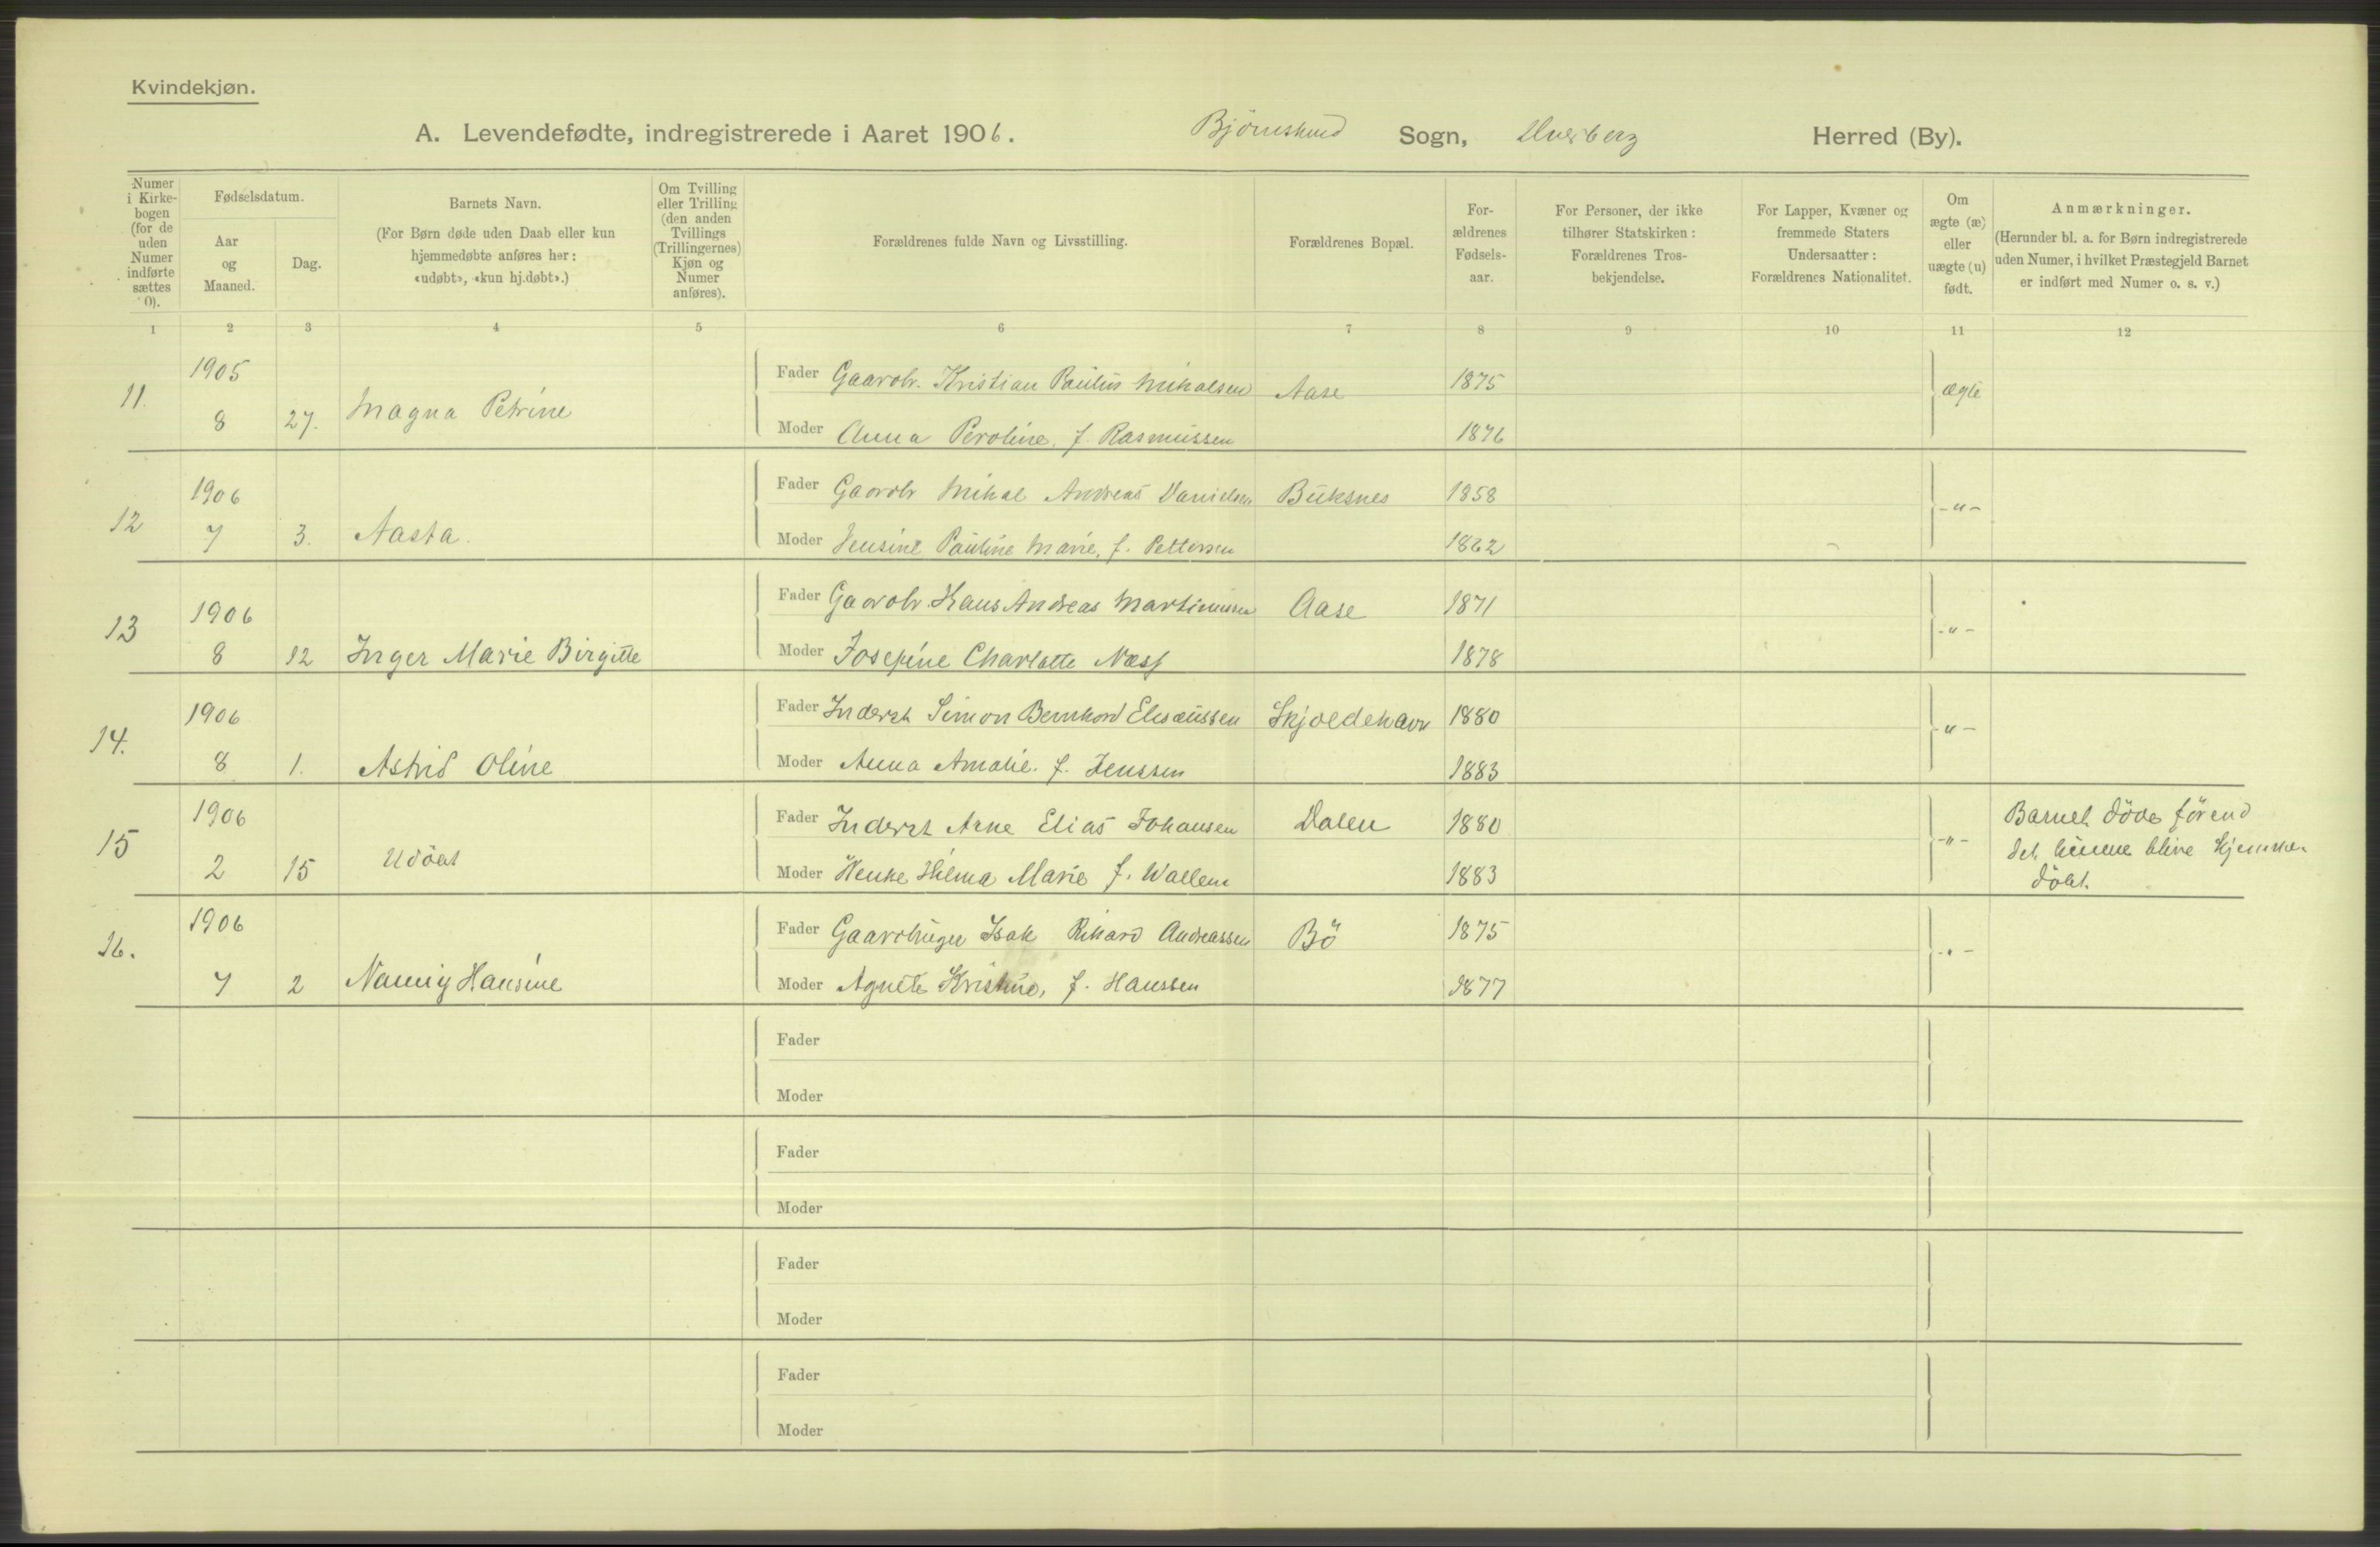 Kvindekjøn.
A. Levendefødte, indregistrerede i Aaret 1906. Bjørnskind Sogn, Dverberg Herred (By).
Numer i Kirke-bogen (for de uden Numer indførte sættes 0).
Fødselsdatum.
Aar og Maaned.
Dag.
Barnets Navn.
(For Børn døde uden Daab eller kun hjemmedøbte anføres her: «udøbt», «kun hj.døbt».)
Om Tvilling eller Trilling (den anden Tvillings (Trillingernes) Kjøn og Numer anføres).
Forældrenes fulde Navn og Livsstilling.
Forældrenes Bopæl.
For-ældrenes Fødsels-aar.
For Personer, der ikke tilhører Statskirken: Forældrenes Tros-bekjendelse.
For Lapper, Kvæner og fremmede Staters Undersaatter: Forældrenes Nationalitet.
Om ægte (æ) eller uægte (u) født.
Anmærkninger.
(Herunder bl. a. for Børn indregistrerede uden Numer, i hvilket Præstegjeld Barnet er indført med Numer o. s. v.)
1 2 3 4 5 6 7 8 9 10 11 12
1905 Fader Gaardbr. Kristian Paulus Mikalsen Aase 1875 ægte
11. 8 27. Magna Petrine Moder Anna Peroline, f. Rasmussen 1876
1906 Fader Gaardbr Mikal Andreas Danielsen Buksnes 1858 -"-
12 7 3. Aasta. Moder Jensine Pauline Marie, f. Pettersen 1862
1906 Fader Gaardbr. Hans Andreas Martinussen Aase 1871 -"-
13 8 12 Inger Marie Birgitte Moder Josefine Charlotte Næss 1878
1906 Fader Inderst Simon Bernhard Elisæussen Skjoldehavn 1880 -"-
14. 8 1. Astrid Oline Moder Anna Amalie. f. Jenssen 1883
1906 Fader Inderst Arne Elias Johansen Dalen 1880 -"- Barnet døde førend
15 2 15 Udøbt Moder Henke Hilma Marie f. Wallem 1883 det kunne blive hjemme-
døbt.
1906 Fader Gaardbruger Isak Rikard Andreassen Bö 1875 -"-
16. 7 2 Nanny Hansine Moder Agnete Kristine, f. Hanssen 1877
Fader
Moder
Fader
Moder
Fader
Moder
Fader
Moder